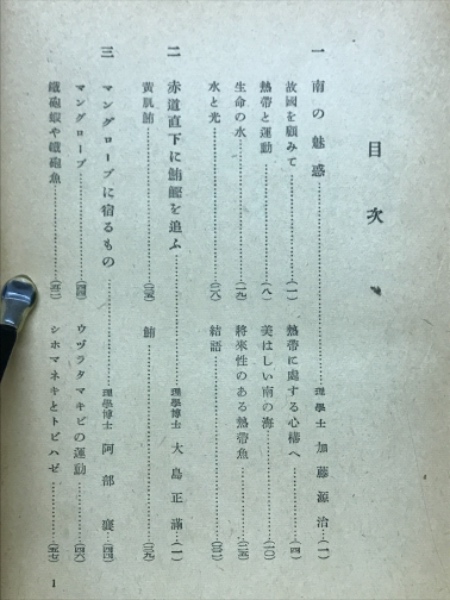 目次
一 南の魅惑 理學士 加藤源治(一)
故國を顧みて(一) 熱帶に處する心構へ(四)
熱帶と運動(八) 美はしい南の海(一〇)
生命の水(一九) 將來性のある熱帶魚(二五)
水と光(二八) 結語
二 赤道直下に鮪鰹を追ふ 理學博士 大島正滿
黃肌鮪 鮪
三 マングローブに宿るもの 理學博士 阿部襄(四四)
マングローブ(四四) ウヅラタマキビの運動(四八)
鐵砲蝦や鐵砲魚(五二) シホマネキとトビハゼ(五七)
1